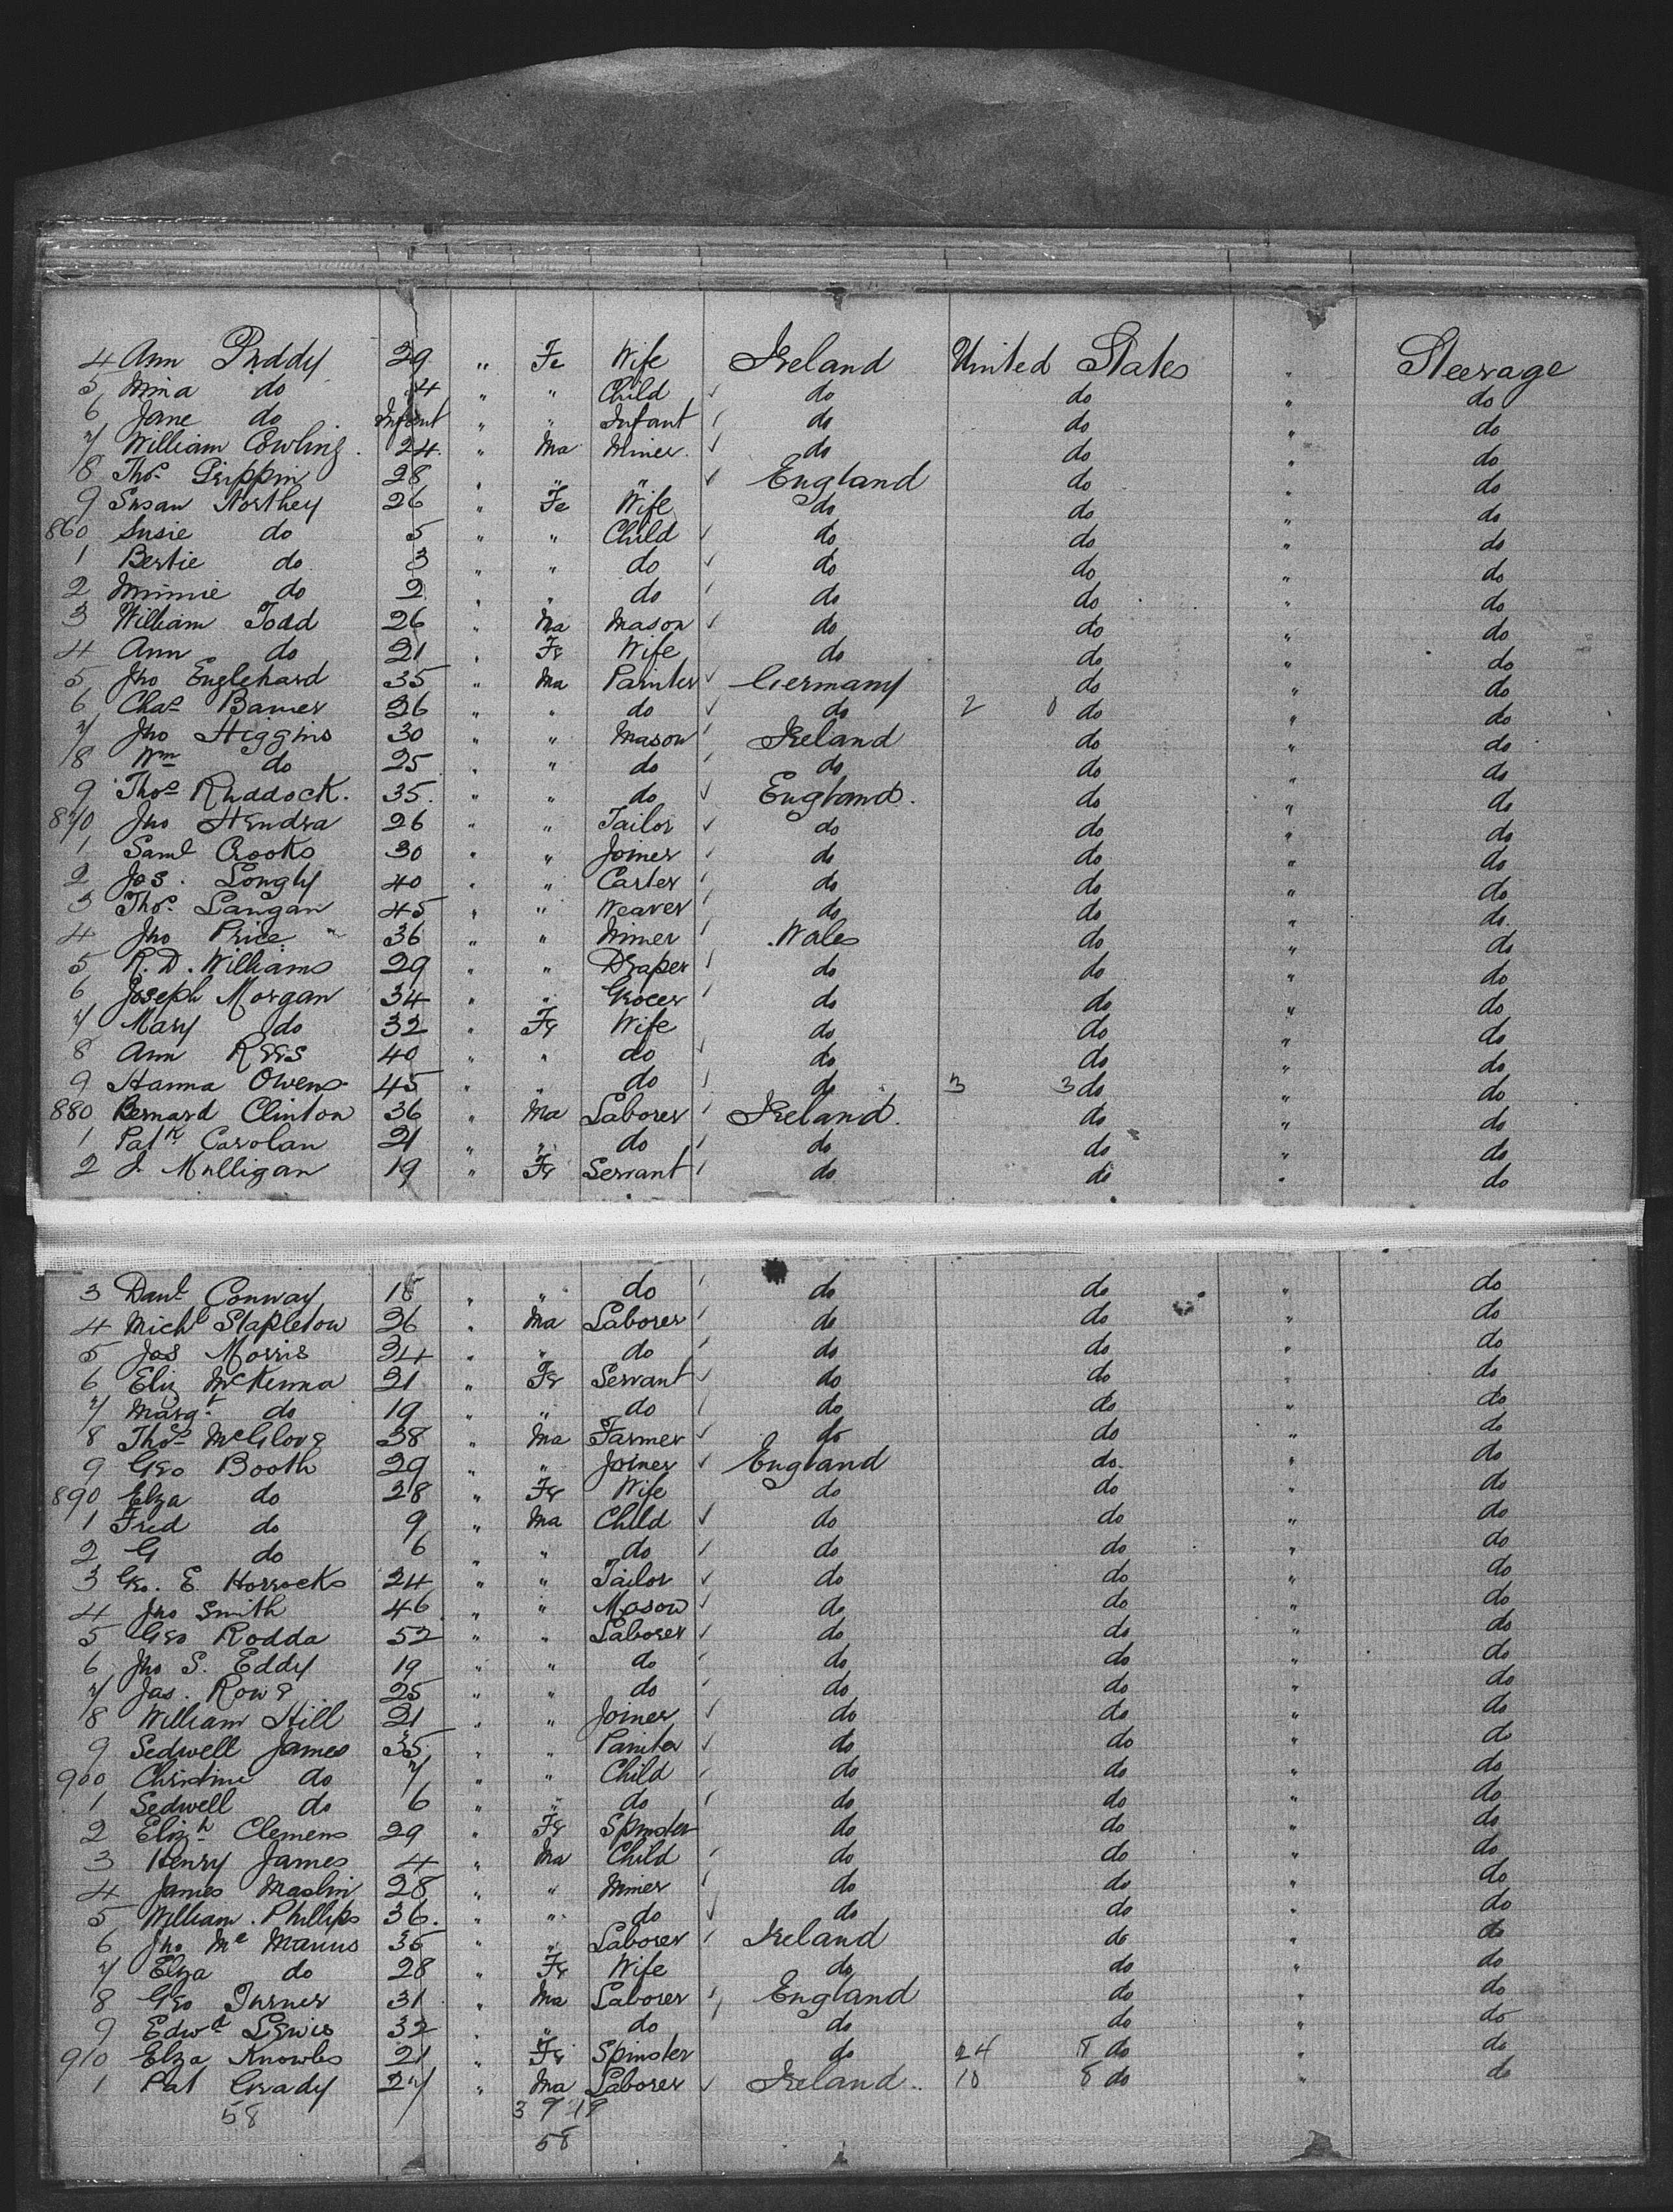 4 Ann Priddy 29 " Fe Wife Ireland United States " Steerage
5 Mina do 4 " " Child do do " do
6 Jane do Infant " " Infant do do " do
7 William Cowling. 24. " Ma Miner do do " do
8 Thos. Grippin 28 " " " England do " do
9 Susan Northey 26 " Fe Wife do do " do
860 Susie do 5 " " Child do do " do
1 Bertie do 3 " " do do do " do
2 Minnie do 2 " " do do do " do
3 William Todd 26 " Ma Mason do do " do
4 Ann do 21 " Fe Wife do do " do
5 Jno Englehard 35 " Ma Painter Germany do " do
6 Chas Bamer 26 " " do do 2 0 do " do
7 Jno Higgins 30 " " Mason Ireland do " do
8 Wm do 25 " " do do do " do
9 Thos Ruddock. 35. " " do England. do " do
870 Jno Hendra 26 " " Tailor do do " do
1 Saml Crooks 30 " " Joiner do do " do
2 Jos. Longly 40 " " Carter do do " do
3 Thos. Langan 45 " " Weaver do do " do
4 Jno Price 36 " " Miner Wales do " do
5 R. D. Williams 29 " " Draper do do " do
6 Joseph Morgan 34 " " Grocer do do " do
7 Mary do 32 " Fe Wife do do " do
8 Ann Rees 40 " " do do do " do
9 Hanna Owens 45 " " do do 3 3 do " do
880 Bernard Clinton 36 " Ma Laborer Ireland. do " do
1 Patk Carolan 21 " " do do do " do
2 J. Mulligan 19 " Fe Servant do do " do
3 Danl Conway 18 " " do do do " do
4 Michl Stapleton 26 " Ma Laborer do do " do
5 Jas Morris 34 " " do do do " do
6 Eliz McKenna 21 " Fe Servant do do " do
7 Margt do 19 " " do do do " do
8 Thos McGlove 38 " Ma Farmer do do " do
9 Geo Booth 29 " " Joiner England do. " do
890 Elza do 28 " Fe Wife do do " do
1 Fred do 9 " Ma Child do do " do
2 G do 6 " " do do do " do
3 Geo. E. Horrocks 24 " " Tailor do do " do
4 Jno Smith 46 " " Mason do do " do
5 Geo Rodda 52 " " Laborer do do " do
6 Jno S. Eddy 19 " " do do do " do
7 Jas. Rowe 25 " " do do do " do
8 William Hill 21 " " Joiner do do " do
9 Sedwell James 35 " " Painter do do " do
900 Christine do 7 " " Child do do " do
1 Sedwell do 6 " " do do do " do
2 Elizh Clemens 29 " Fe Spinster do do " do
3 Henry James 4 " Ma Child do do " do
4 James Maslin 28 " " Miner do do " do
5 William. Phillips 36. " " do do do " do
6 Jno Mc Manus 35 " " Laborer Ireland do " do
7 Elza do 28 " Fe Wife do do " do
8 Geo Turner 31 " Ma Laborer England do " do
9 Edwd Lewis 32 " " do do do " do
910 Elza Knowles 21 " Fe Spinster do 24 8 do " do
1 Pat Grady 27 " Ma Laborer Ireland.. 10 8 do " do
58 3 9 49
58